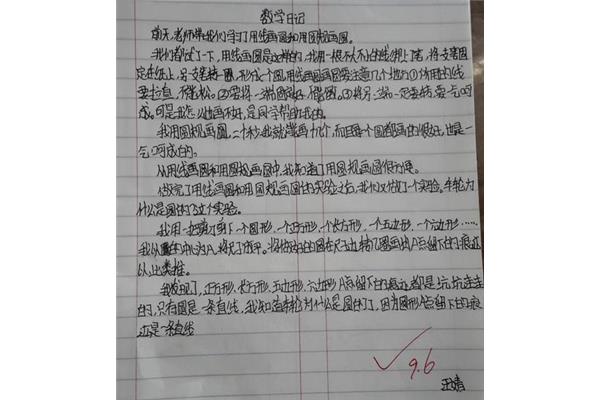 数学日记
前天,老师带我们学习了用线画圆和用圆规画圆。
我们都试了一下,用线画圆是这样的:我用一根不大不小的线绑上
定在纸上,另一支 转一圈,形成一个圆。用线画圆画圆要注意几个地方①使用的线
要拉直,不能松。②要将一端固定好,不能 。③将另一端一定要转 一气呵
成。可是我怎么也画不好,是同学帮助我的。
我用圆规画圆,二个秒我就能画十几个,而且每个圆都画的很好,也是一
气呵成的。
从用线画圆和用圆规画圆中,我知道了用圆规画圆很方便。
做完了用线画圆和用圆规画圆的实验之后,我们又做了一个实验,车轮为
什么是圆的?这个实验。
我用一把剪刀剪下一个圆形、一个正方形、一个长方形、一个五边形、一个六边形……
我从 的中心为A,
以此类推。
我发现了,正方形、长方形、五边形、六边形A点留下的痕迹都是坑坑洼洼
的,只有圆是一条直线,我知道车轮为什么是圆的了,因为圆形A点留下的痕
迹是一条直线
9.6